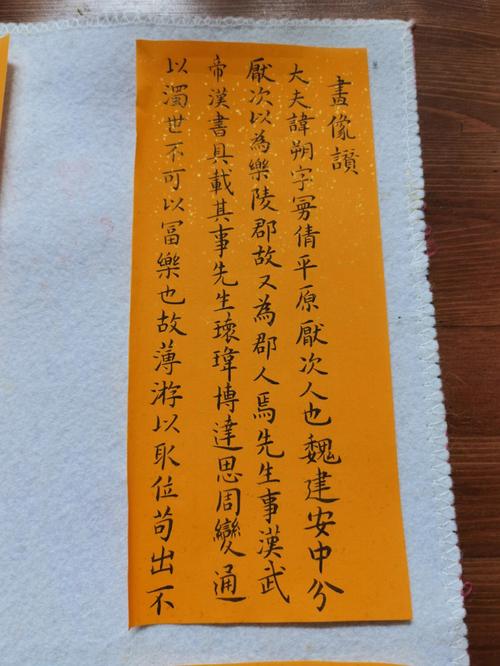 畫像讃
大夫諱朔字㝃倩平原厭次人也魏建安中分
厭次以為樂陵郡故又為郡人焉先生事漢武
帝漢書具載其事先生瓌瑋博達思周變通
以濁世不可以冨樂也故薄游以取位苟出不